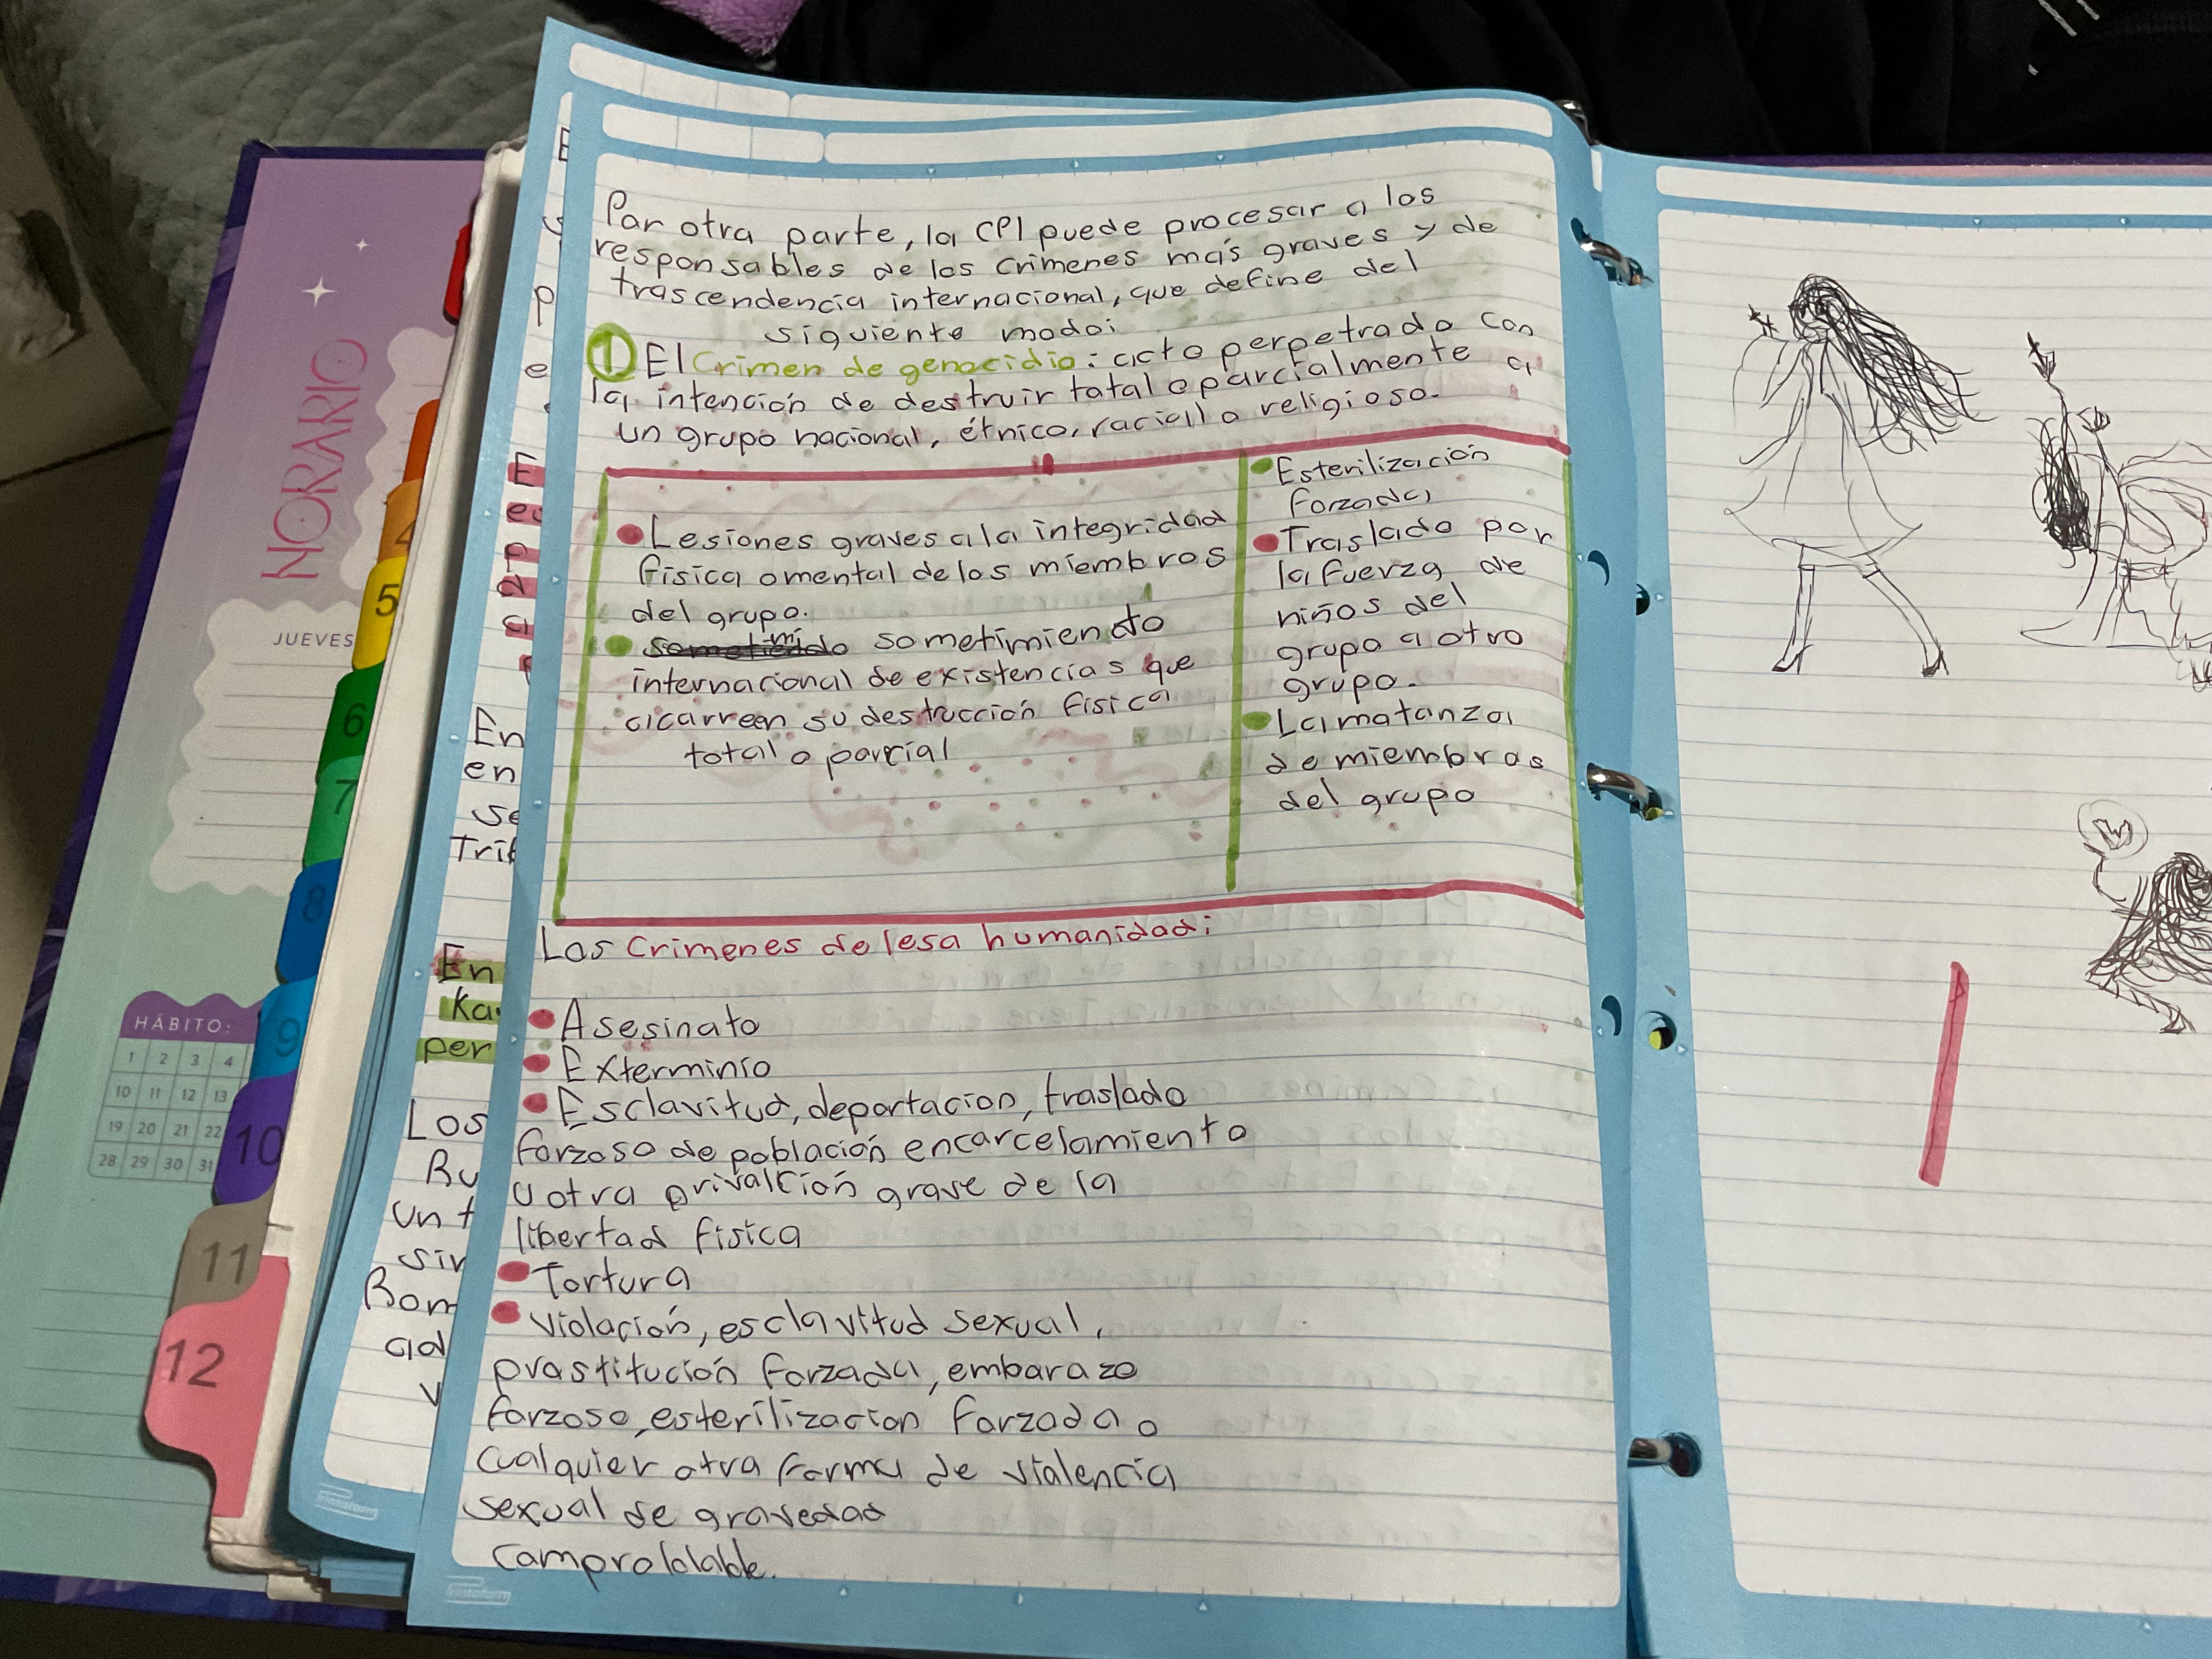 Por otra parte, la CPI puede procesar a los
responsables de los crimenes más graves y de
trascendencia internacional, que define del
siguiente modo:
① El Crimen de genocidio: acto perpetrado con
la intención de destruir total o parcialmente a
un grupo nacional, étnico, racial o religioso.
• Lesiones graves a la integridad
física o mental de los miembros
del grupo.
• sometimiento
internacional de existencias que
acarreen su destrucción física
total o parcial
• Esterilización
forzada,
• Traslado por
la fuerza de
niños del
grupo a otro
grupo.
• La matanza
de miembros
del grupo
Los Crimenes de lesa humanidad:
• Asesinato
• Exterminio
• Esclavitud, deportacion, traslado
forzoso de población encarcelamiento
u otra privación grave de la
libertad física
• Tortura
• Violación, esclavitud sexual,
prostitución forzada, embarazo
forzoso, esterilizacion forzada o
cualquier otra forma de violencia
sexual de gravedad
HORARIO
JUEVES
HÁBITO:
1 2 3 4
10 11 12 13
19 20 21 22
28 29 30 31
4
5
6
7
8
9
10
11
12
En
en
se
En
per
Los
Printaform